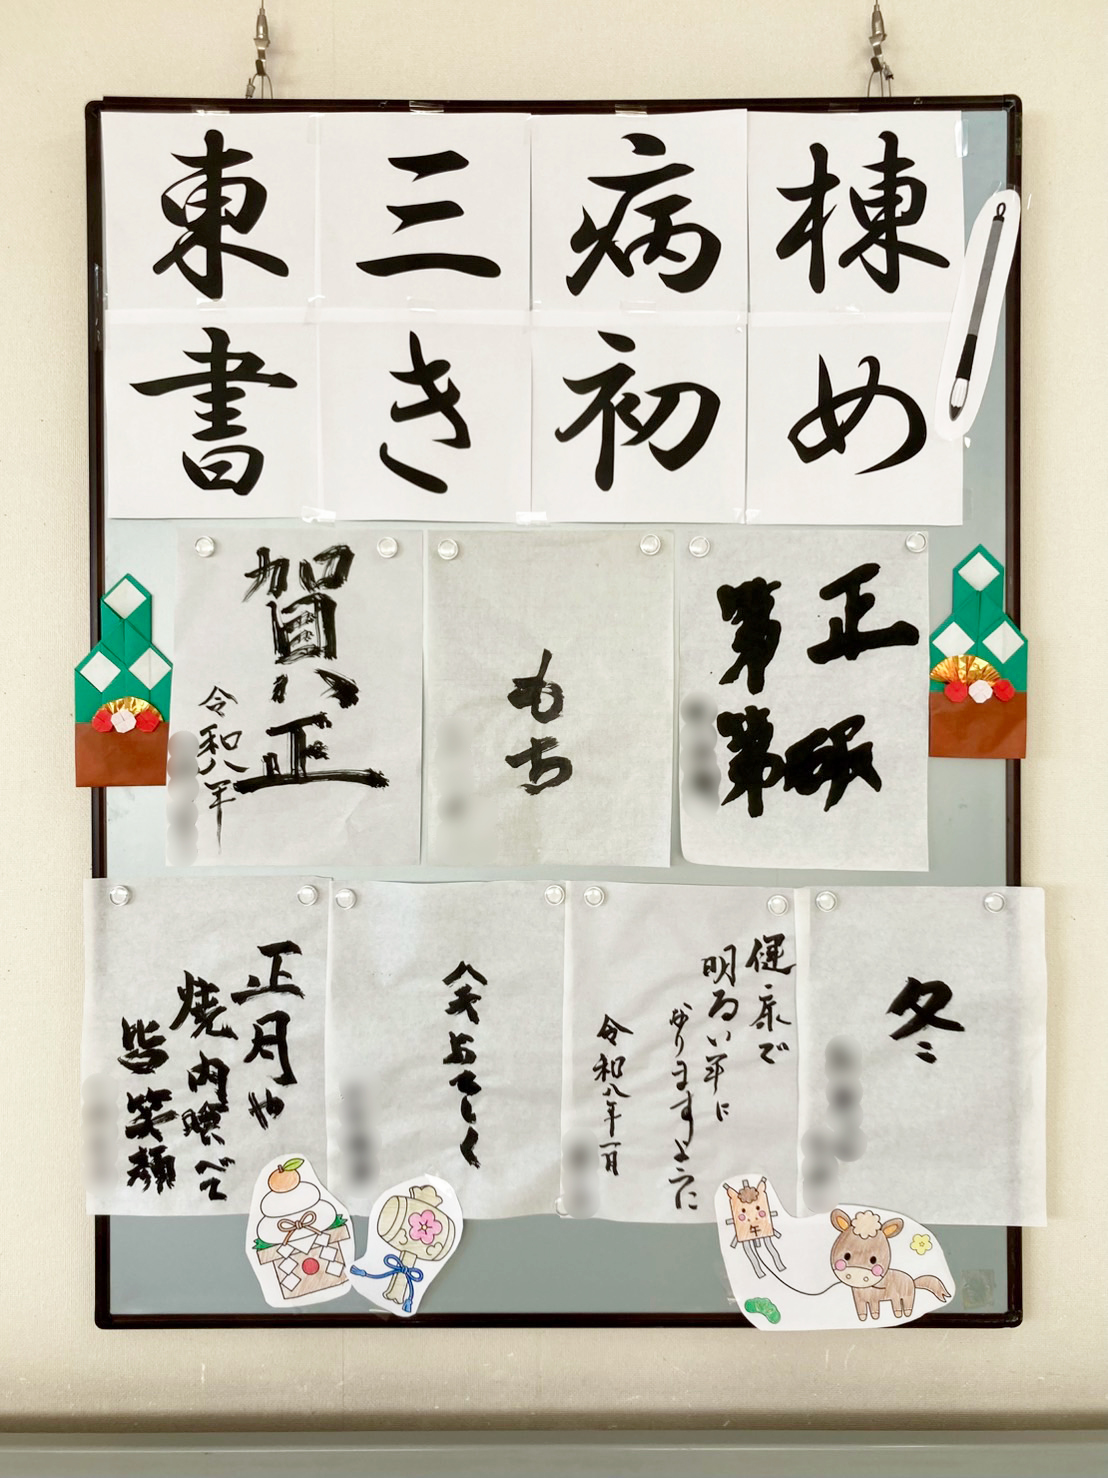 東三病棟
書き初め
賀正
令和八年
もち
正
第
第
正月や
焼肉喰べて
皆笑顔
健康で
明るい年に
なりますように
令和八年一月
冬
午